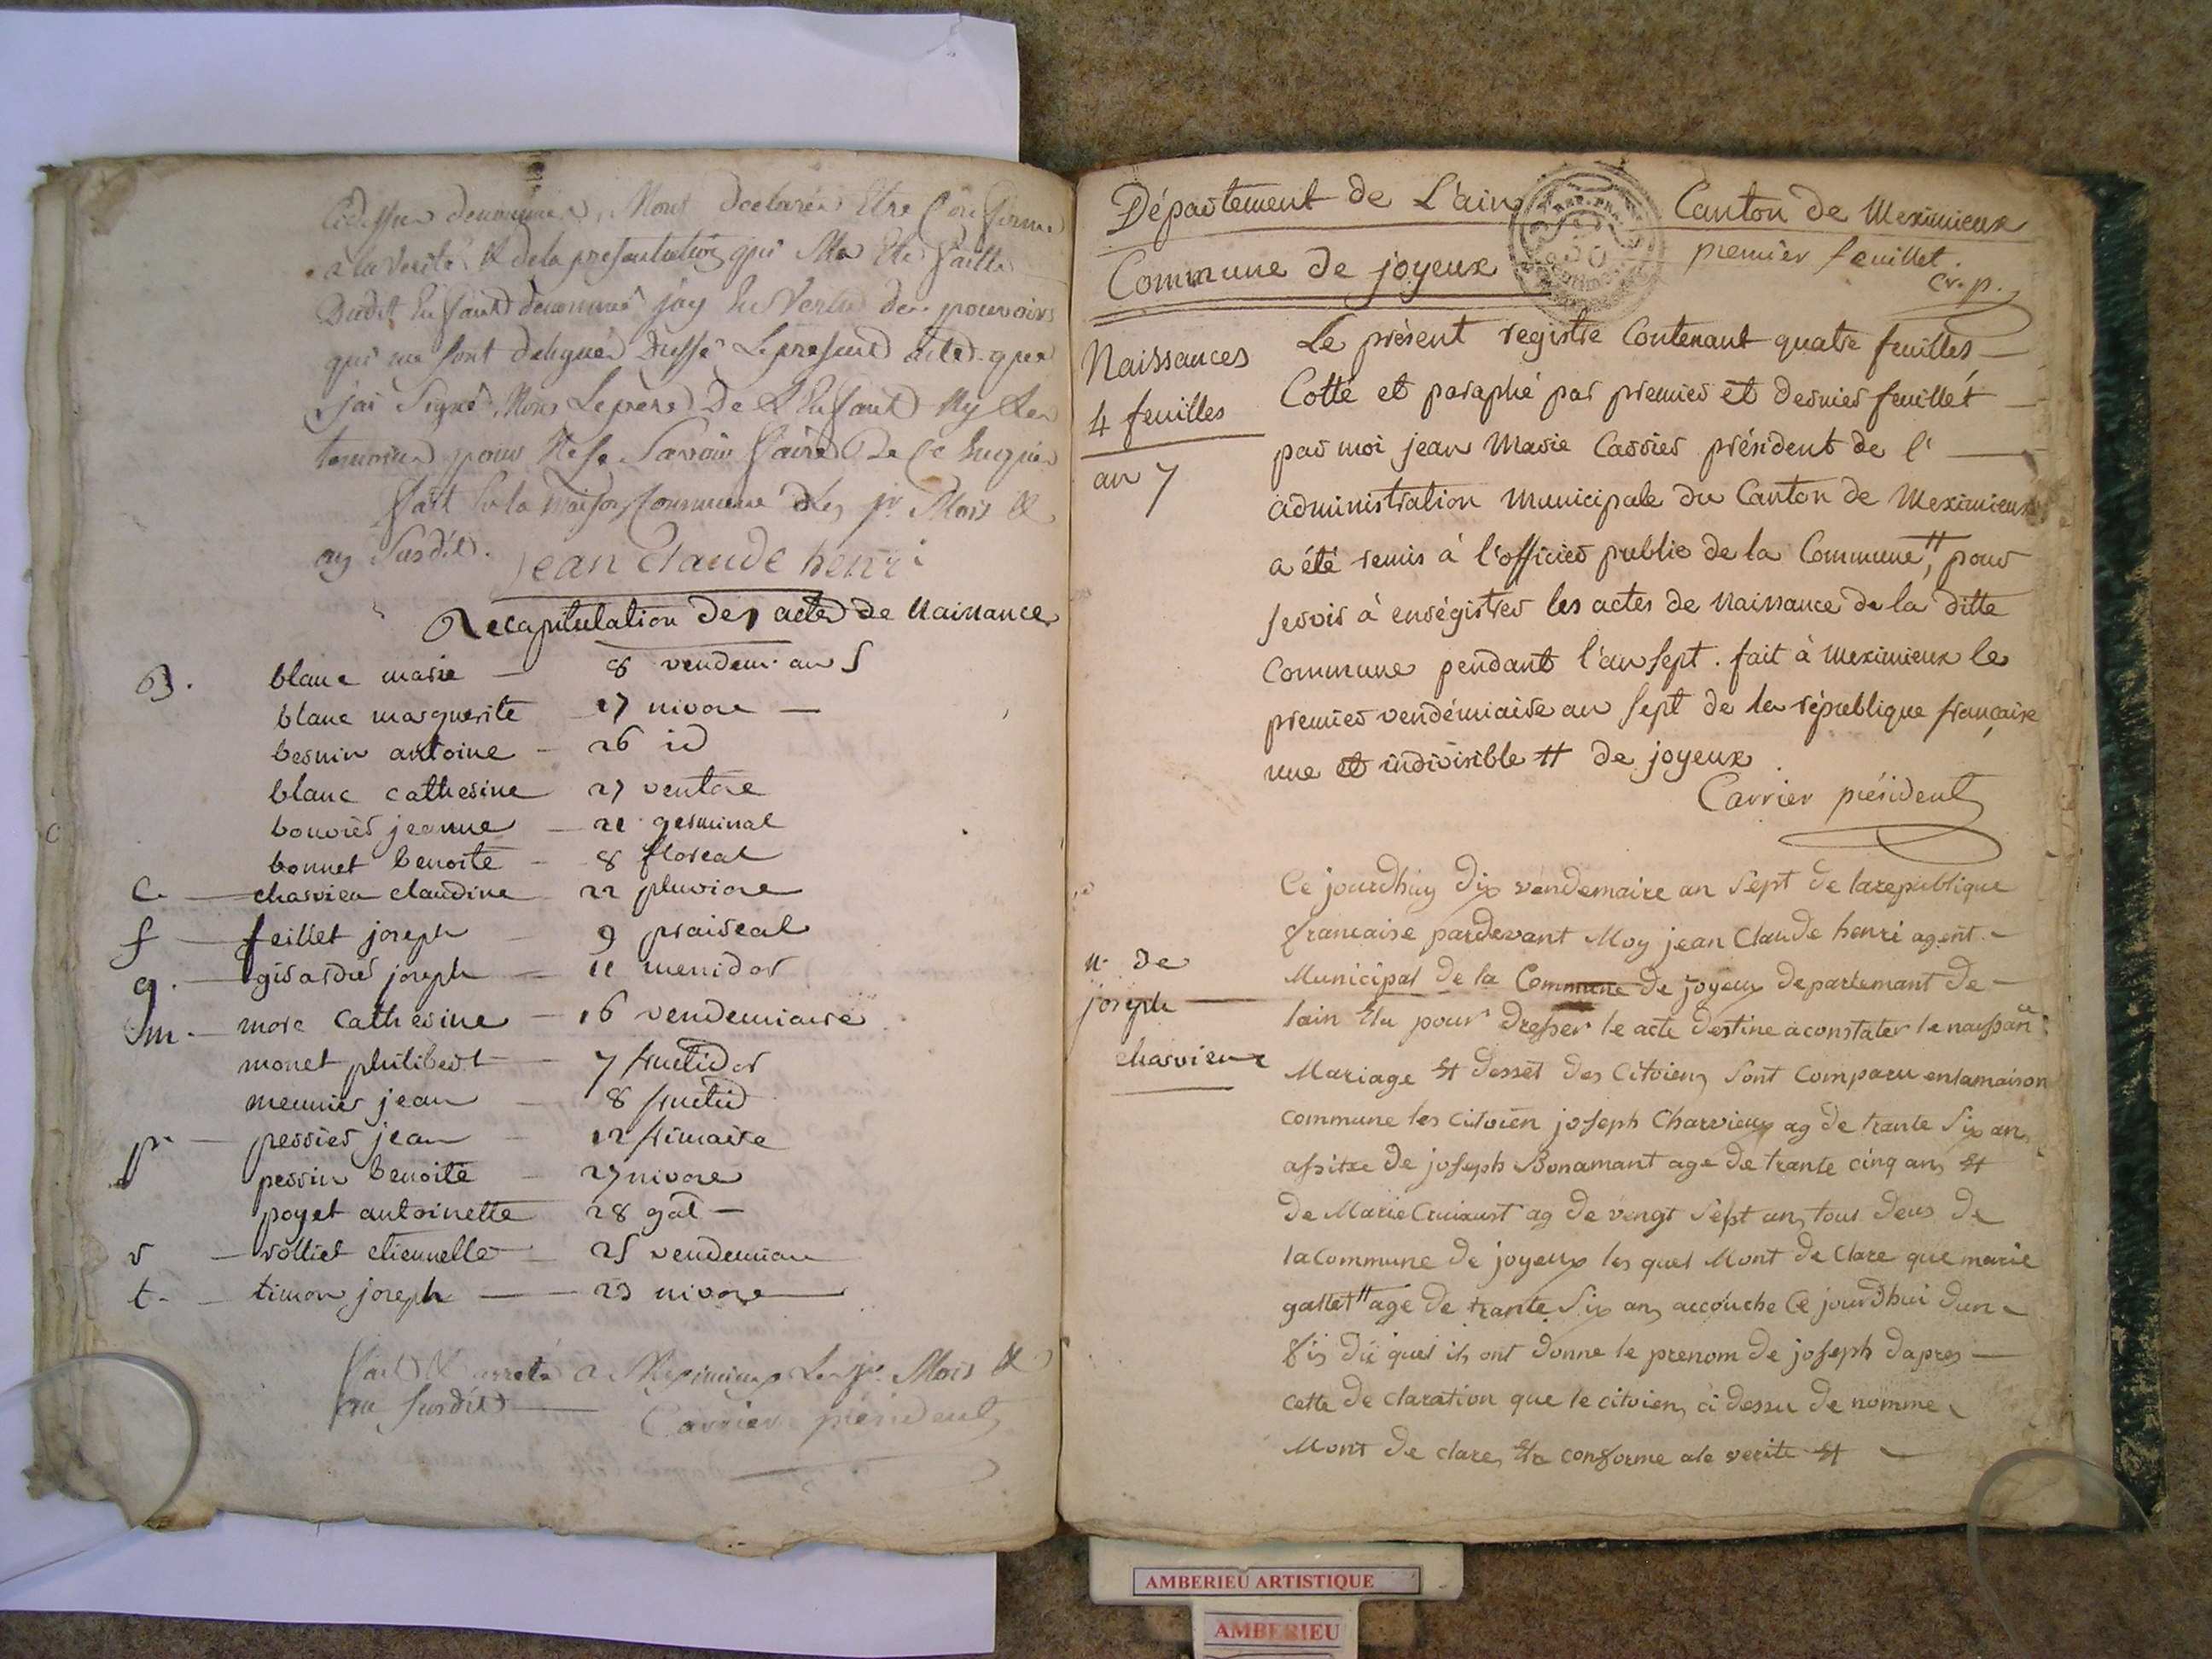 Cidessus denommés, Mont declarés Etre Conforme
a la Verité & de la presentation qui Ma Eté faitte
Dudit Enfant denommé jay En Vertu des pouvoirs
qui me sont delegués Dressé Le present acte que
j'ai Signé, Non Le pere De L'Enfant Ny Les
temoins pour Ne Savoir faire De Ce Enquis
fait En la Maison Commune Les jr Mois &
an Susdit.
jean Claude henri
Recapitulation des actes de Naissance
B. blanc marie — 8 vendem. an 5
blanc marguerite 27 nivose —
bernin antoine — 26 id
blanc catherine 27 ventose
bouvier jeanne — 21 germinal
bonnet benoite — 8 floreal
C. — charvieu claudine 22 pluviose
f — feillet joseph — 9 praireal
g. — girardier joseph — 11 messidor
m. — more catherine — 16 vendemiaire
monet philibert — 7 fructidor
meunier jean — 8 fructid
p. — perrier jean — 12 frimaire
perrin benoite — 27 nivose
poyet antoinette 28 gal —
v — volliet etiennette — 25 vendemiau
t. — timon joseph — 23 nivose
fait & arreté a Meximieux Les jr. Mois &
an susdit —
Carrier président
Département de L'ain
Canton de Meximieux
premier feuillet.
cr. p.
Commune de joyeux
Naissances
4 feuilles
an 7
Le présent registre Contenant quatre feuilles —
Cotté et paraphé par premier et dernier feuillet —
par moi jean Marie Carrier président de l' —
administration municipale du Canton de Meximieux
a été remis à l'officier public de la Commune, # pour
servir à enrégistrer les actes de Naissance de la ditte
Commune pendant l'an sept. fait à Meximieux le
premier vendémiaire an sept de la république française
une et indivisible # de joyeux.
Carrier président
N. de
joseph —
charvieux
Ce jourdhuy dix vendemaire an Sept de la republique
francaise pardevant Moy jean Claude henri agent —
Municipal de la Commune de joyeux departemant de —
lain Elu pour dresser le acte destine a constater le naissance
Mariage Et desset des Citoiens Sont Comparu en la maison
commune les citoien joseph Charvieux ag de trante Six ans
assitre de joseph Bonamant age de trante cinq ans Et
de Marie ag de vingt Sept ans tous deus de
la commune de joyeux les quel Mont de clare que marie
gallet # age de trante Six ans accouche Ce jourdhui dun
fis du quel ils ont donne le prenom de joseph dapres —
cette de claration que le citoiens ci dessu de nomme
Mont de clares Etre conforme a la verite Et —
AMBERIEU ARTISTIQUE
AMBERIEU